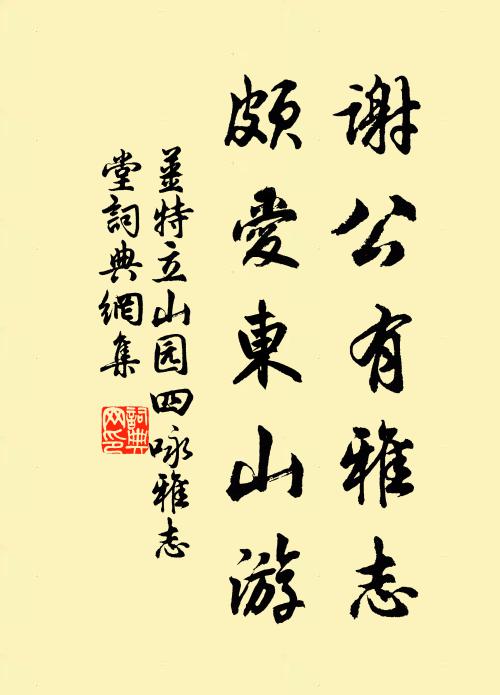 谢公有雅志
颇爱東山游
薑特立山园四咏雅志
堂詞典網集
詞典
网印